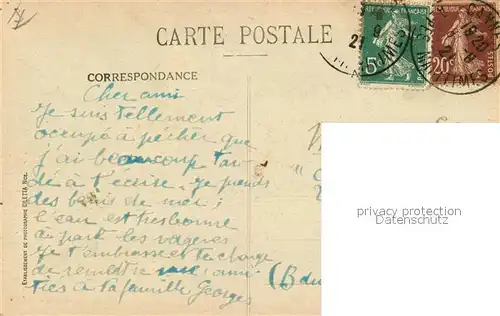 CARTE POSTALE
CORRESPONDANCE
RÉPUBLIQUE FRANÇAISE
5c
20c
POSTES
Cher ami
Je suis tellement
occupé à pêcher que
j'ai beaucoup tar-
dé à t'écrire. Je prends
des bains de mer;
l'eau est très bonne
à part les vagues
Je t'embrasse et te charge
de remettre mes ami-
tiés à ta famille Georges
ÉTABLISSEMENT DE PHOTOGRAPHIE GILETTA, Nice.
privacy protection
watermark